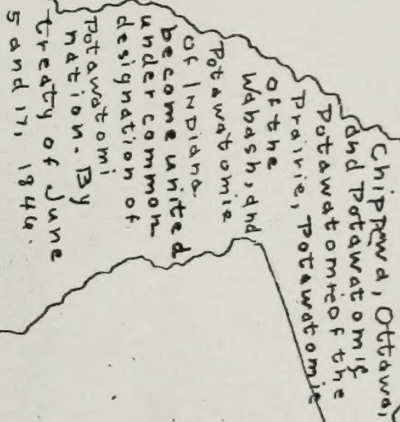 Chippewa, Ottawa,
and Potawatomie
Potawatomie of the
Prairie, Potawatomie
of the
Wabash, and
Potawatomie
of Indiana.
become united
under common
designation of
Potawatomi
nation. By
treaty of June
5 and 17, 1846.